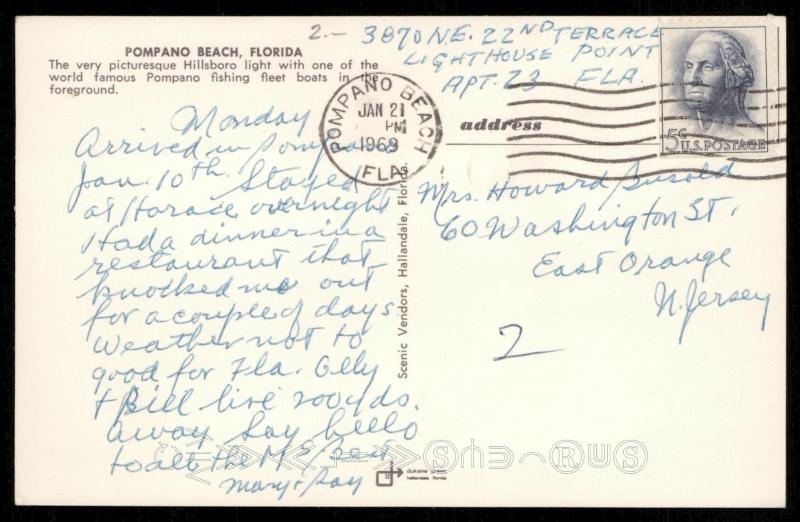 2.- 3870 N.E. 22ND TERRACE
LIGHTHOUSE POINT
APT. 23 FLA.
POMPANO BEACH, FLORIDA
The very picturesque Hillsboro light with one of the
world famous Pompano fishing fleet boats in the
foreground.
POMPANO BEACH
JAN 21
PM
1969
FLA.
5¢ U.S. POSTAGE
address
Monday
Arrived in Pompano
Jan. 10th. Stayed
at Horace overnight
Had a dinner in a
restaurant that
knocked me out
for a couple of days
Weather not to
good for Fla.
& Bill live 200 yds.
away Say hello
to all the
Mary & Ray
Mrs. Howard
60 Washington St.
East Orange
N. Jersey
2
Scenic Vendors, Hallandale, Florida.
dukane press
hallandale florida